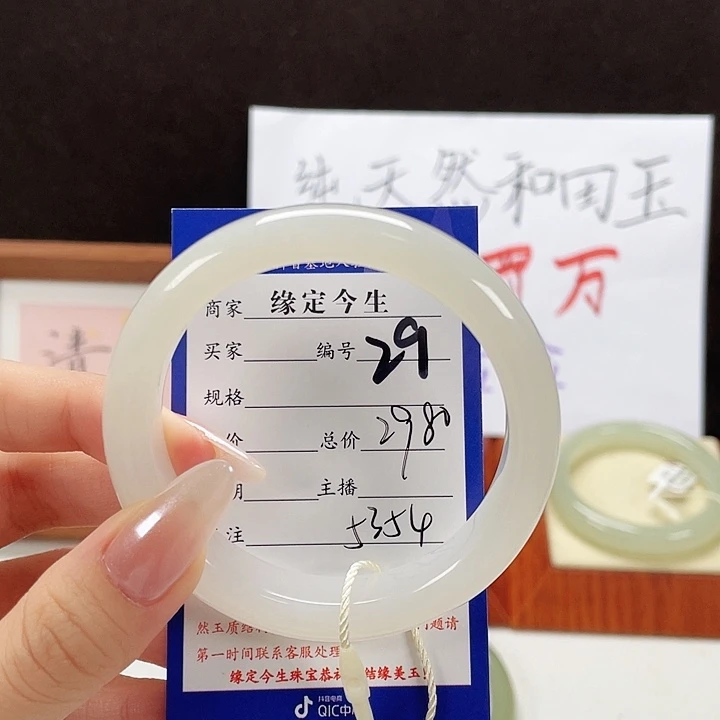 纯天然和田玉
万
清
商家 缘定今生
买家 编号 29
规格
价 总价 2980
主播
注 5354
然玉质结
题请
第一时间联系客服处理
缘定今生珠宝恭祝 结缘美玉!
抖音电商
QIC中